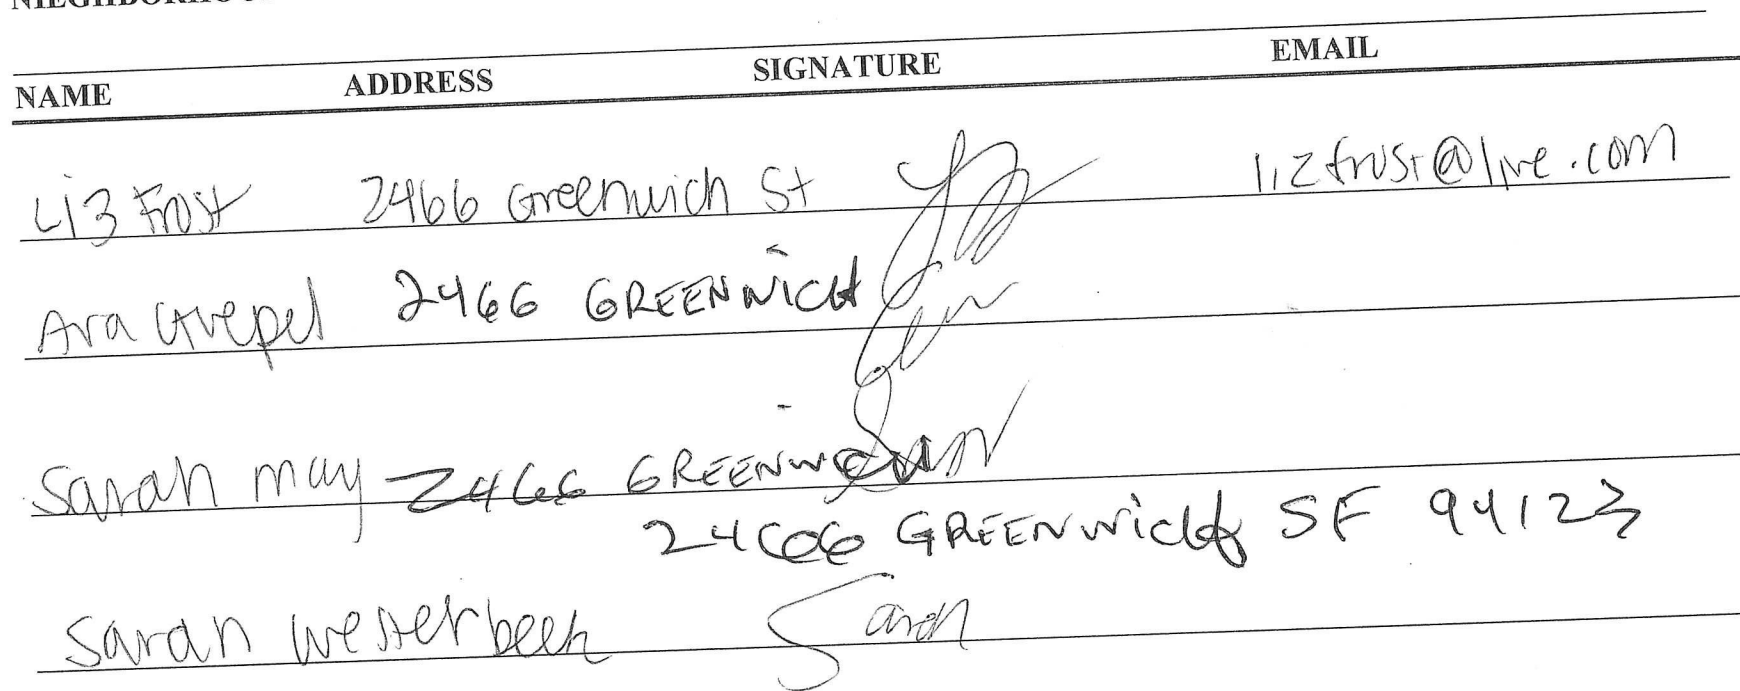 NAME ADDRESS SIGNATURE EMAIL
Liz Frost 2466 Greenwich St lizfrost@live.com
Ava 2466 GREENWICH
Sarah may 2466 GREENWICH
2466 GREENWICH SF 94123
Sarah Westerbeek Sarah